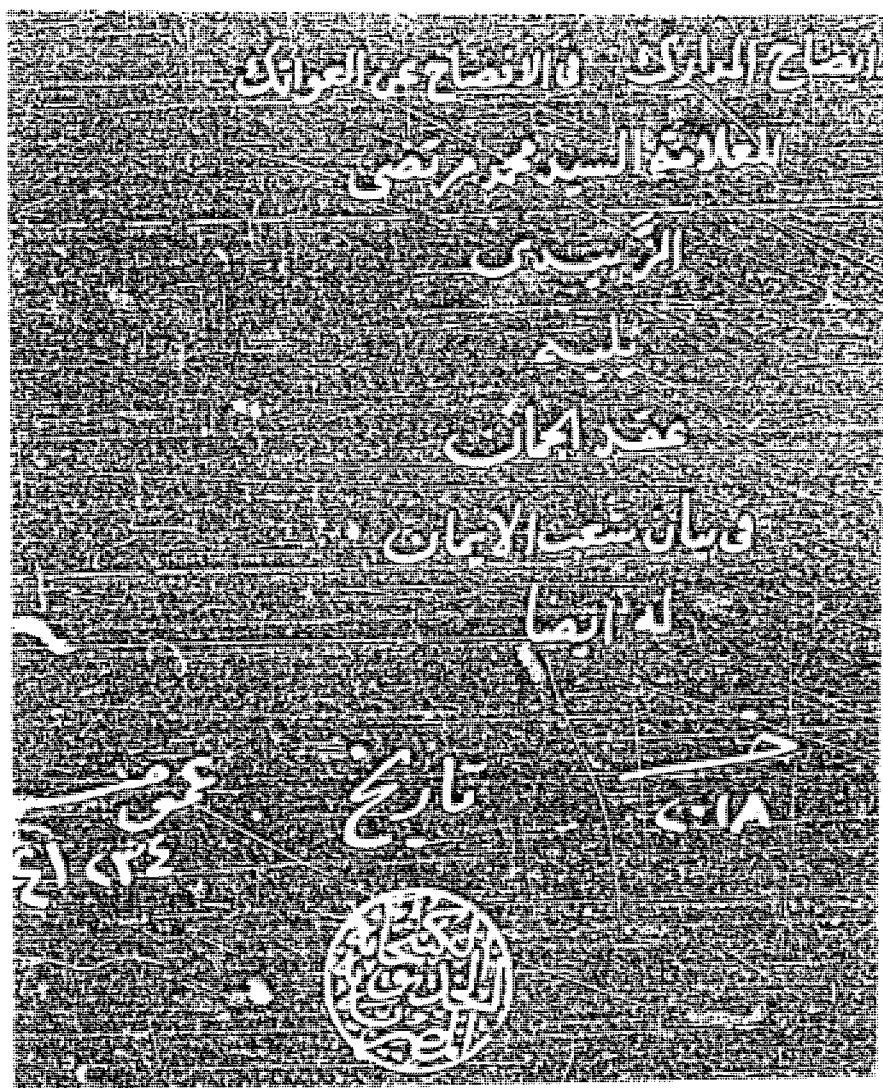 ايضاح المدارك في الافصاح عن العواتك
للعلامة السيد محمد مرتضى
الزَّبيدى
يليه
عقد الجمان
في بيان شعب الايمان
له ايضا
خـ تاريخ عمومى
٢٠١٨
الكتبخانة الخديوية المصرية